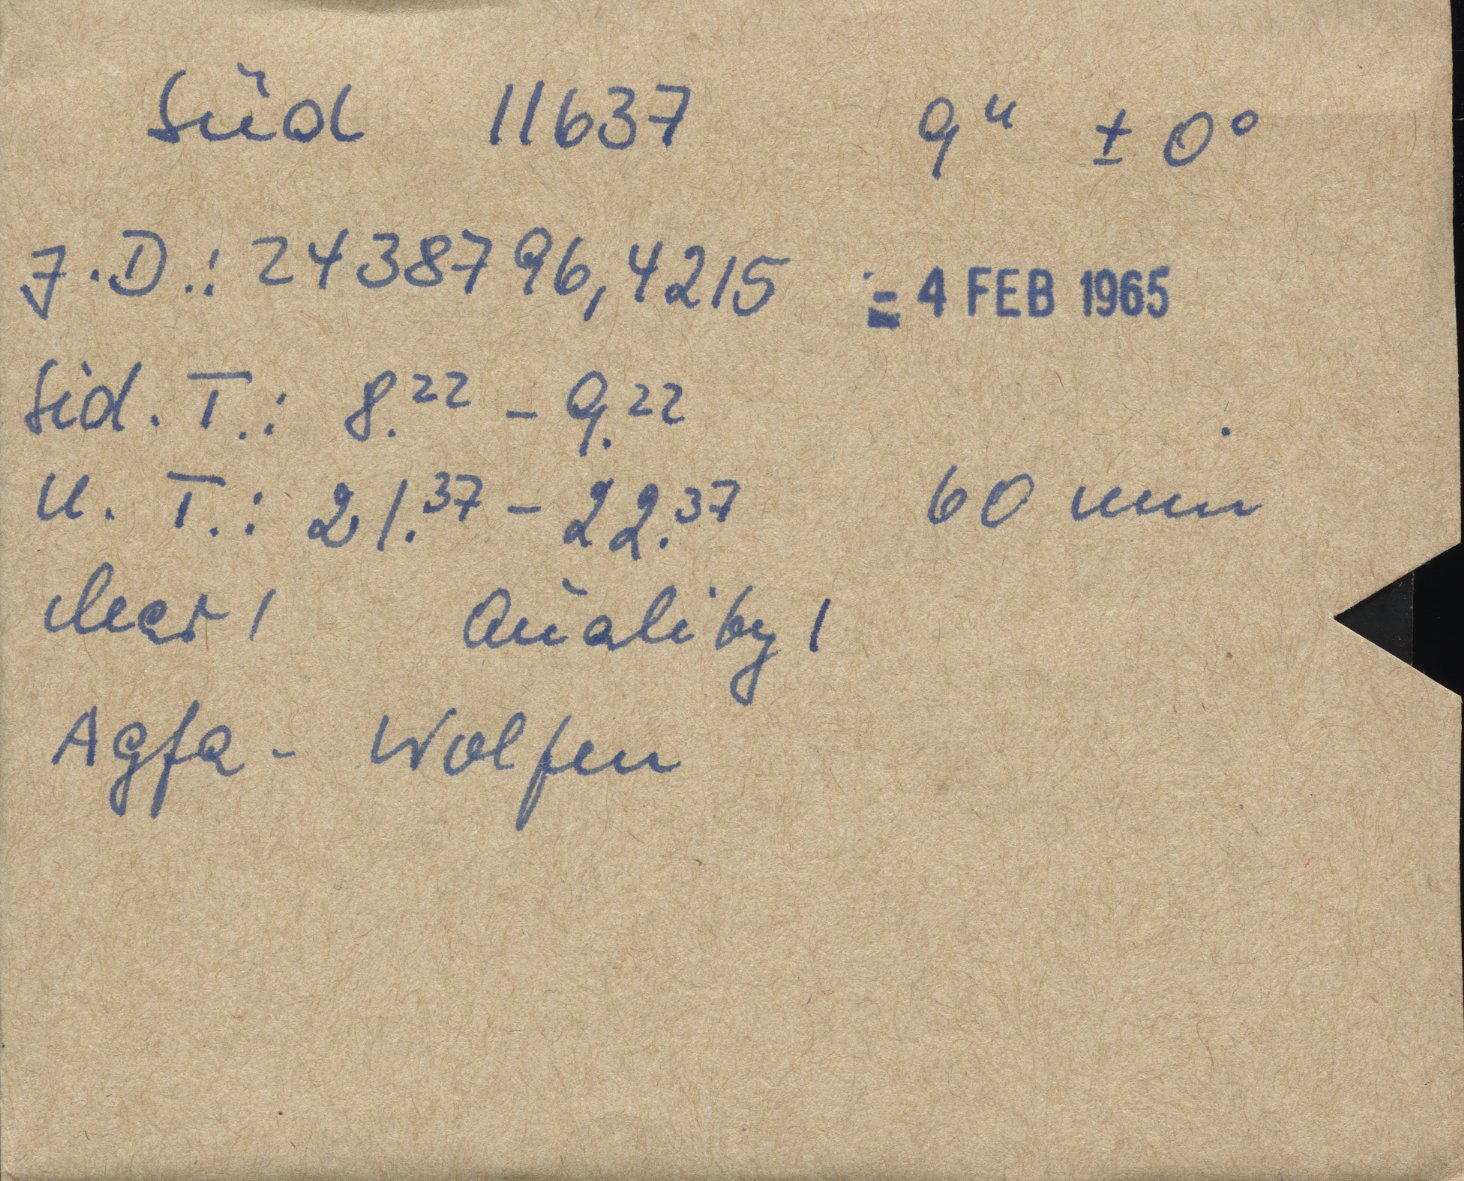 Süd 11637 9ʰ ± 0°
J.D.: 2438796,4215 = 4 FEB 1965
Sid. T.: 8.22 - 9.22
U. T.: 21.37 - 22.37 60 min
clear! Quality 1
Agfa - Wolfen